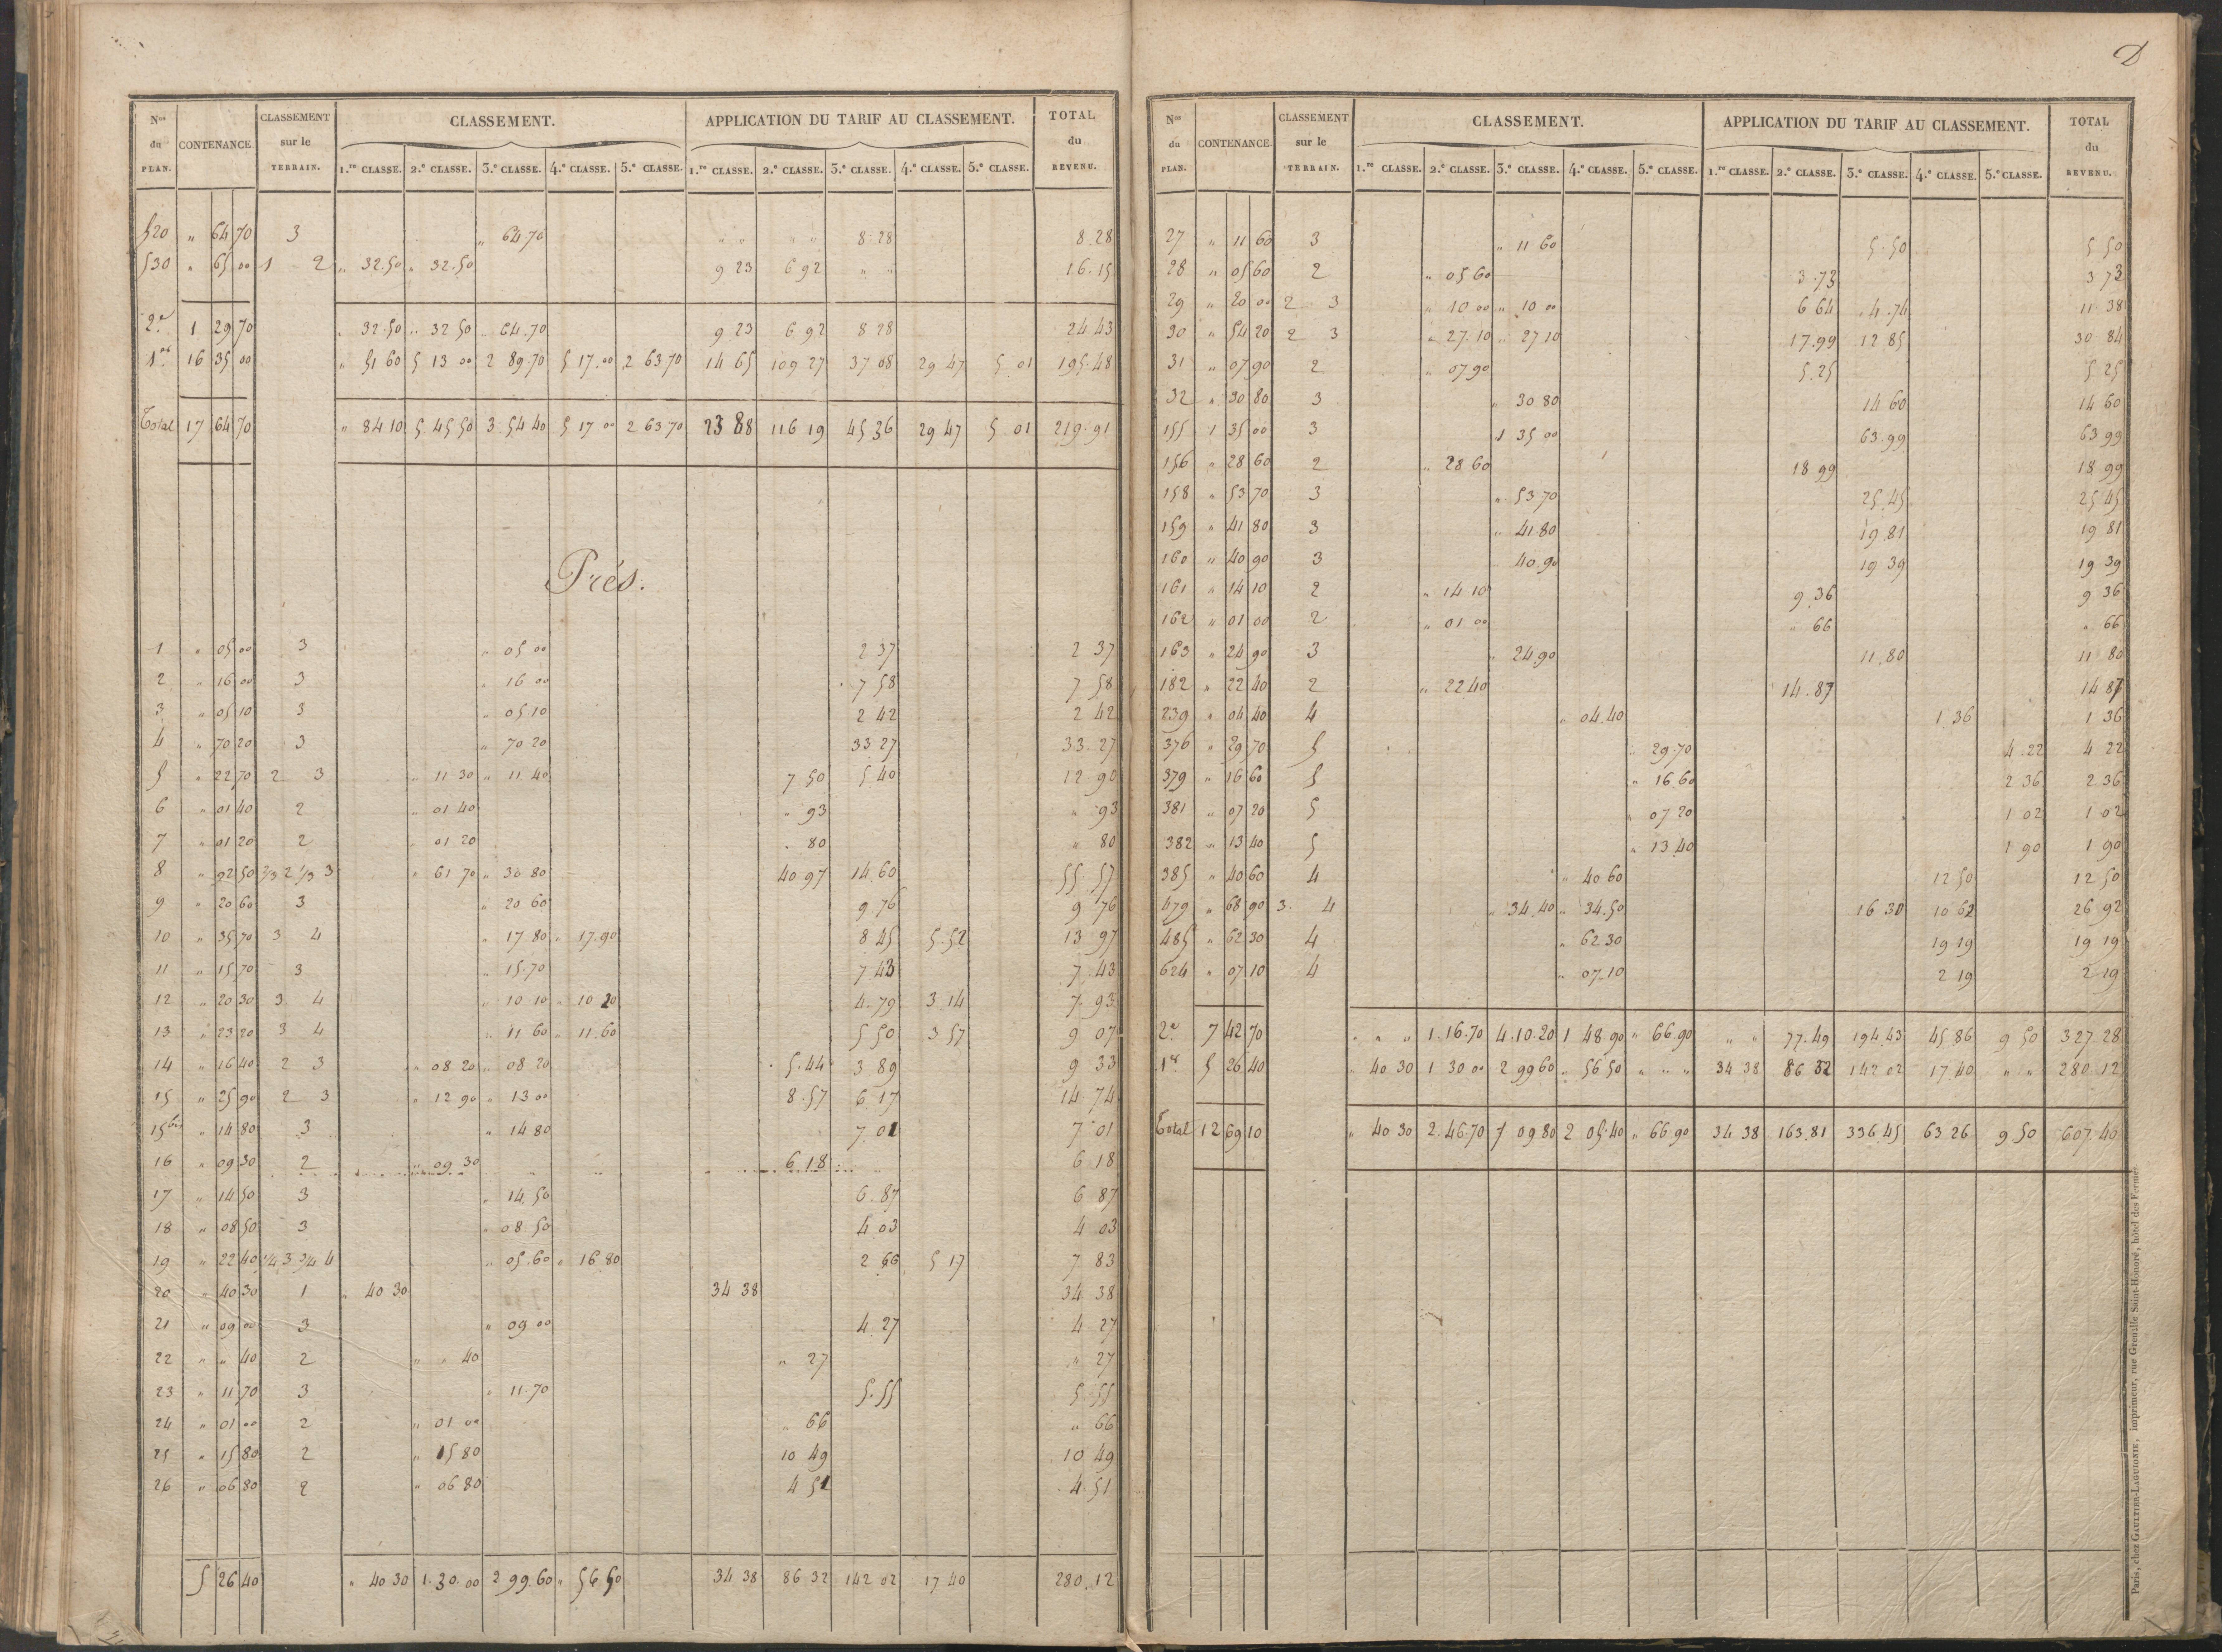 N.os du PLAN. CONTENANCE. CLASSEMENT sur le TERRAIN. CLASSEMENT. APPLICATION DU TARIF AU CLASSEMENT. TOTAL du REVENU.
1.re CLASSE. 2.e CLASSE. 3.e CLASSE. 4.e CLASSE. 5.e CLASSE. 1.re CLASSE. 2.e CLASSE. 3.e CLASSE. 4.e CLASSE. 5.e CLASSE.
520 " 64 70 3 " 64.70 " " " " 8.28 8.28
530 " 65 00 1 2 " 32.50 " 32.50 9 23 6 92 " " 16.15
2e 1 29 70 " 32.50 " 32 50 " 64.70 9 23 6 92 8 28 24 43
1re 16 35 00 " 51 60 5 13 00 2 89.70 5 17.00 2 63 70 14 65 109 27 37 08 29 47 5 01 195.48
Total 17 64 70 " 84 10 5.45 50 3.54 40 5 17 00 2 63 70 23 88 116 19 45 36 29 47 5 01 219.91
Prés.
1 " 05 00 3 " 05 00 2 37 2 37
2 " 16 00 3 " 16 00 7 58 7 58
3 " 05 10 3 " 05.10 2 42 2 42
4 " 70 20 3 " 70 20 33 27 33.27
5 " 22 70 2 3 " 11 30 " 11 40 7 50 5 40 12 90
6 " 01 40 2 " 01 40 " 93 " 93
7 " 01 20 2 " 01 20 " 80 " 80
8 " 92 50 2/3 2 1/3 3 " 61 70 " 30 80 40 97 14.60 55.57
9 " 20 60 3 " 20 60 9 76 9 76
10 " 35 70 3 4 " 17 80 " 17.90 8 45 5.52 13 97
11 " 15 70 3 " 15.70 7.43 7.43
12 " 20 30 3 4 " 10 10 " 10 20 4.79 3 14 7 93
13 " 23 20 3 4 " 11 60 " 11.60 5 50 3 57 9 07
14 " 16 40 2 3 " 08 20 " 08 20 5.44 3 89 9 33
15 " 25 90 2 3 " 12 90 " 13 00 8.57 6 17 14 74
15 bis " 14 80 3 " 14 80 7.01 7 01
16 " 09 30 2 " 09 30 6.18 6 18
17 " 14 50 3 " 14.50 6.87 6 87
18 " 08 50 3 " 08.50 4 03 4 03
19 " 22 40 1/4 3 3/4 4 " 05.60 " 16 80 2 66 5 17 7 83
20 " 40 30 1 " 40 30 34 38 34 38
21 " 09 00 3 " 09 00 4.27 4 27
22 " " 40 2 " " 40 " 27 " 27
23 " 11 70 3 " 11.70 5.55 5.55
24 " 01 00 2 " 01 00 " 66 " 66
25 " 15 80 2 " 15 80 10 49 10 49
26 " 06 80 2 " 06 80 4 51 4.51
5 26 40 " 40 30 1.30.00 2 99.60 " 56 50 34 38 86 32 142 02 17 40 280.12
D
N.os du PLAN. CONTENANCE. CLASSEMENT sur le TERRAIN. CLASSEMENT. APPLICATION DU TARIF AU CLASSEMENT. TOTAL du REVENU.
1.re CLASSE. 2.e CLASSE. 3.e CLASSE. 4.e CLASSE. 5.e CLASSE. 1.re CLASSE. 2.e CLASSE. 3.e CLASSE. 4.e CLASSE. 5.e CLASSE.
27 " 11 60 3 " 11 60 5.50 5 50
28 " 05 60 2 " 05 60 3.73 3 73
29 " 20 00 2 3 " 10 00 " 10 00 6 64 4.74 11 38
30 " 54 20 2 3 " 27.10 " 27 10 17.99 12 85 30 84
31 " 07 90 2 " 07 90 5.25 5 25
32 " 30 80 3 " 30 80 14 60 14 60
155 1 35 00 3 1 35 00 63.99 63 99
156 " 28 60 2 " 28 60 18 99 18 99
158 " 53 70 3 " 53.70 25.45 25 45
159 " 41 80 3 " 41.80 19.81 19 81
160 " 40 90 3 40.90 19 39 19 39
161 " 14 10 2 " 14 10 9.36 9 36
162 " 01 00 2 " 01 00 " 66 " 66
163 " 24 90 3 " 24.90 11.80 11 80
182 " 22 40 2 " 22 40 14.87 14 87
239 " 04 40 4 " 04.40 1 36 1 36
376 " 29 70 5 " 29.70 4.22 4 22
379 " 16 60 5 " 16 60 2 36 2 36
381 " 07 20 5 " 07 20 1 02 1 02
382 " 13 40 5 " 13 40 1 90 1 90
385 " 40 60 4 " 40 60 12 50 12 50
479 " 68 90 3. 4 " 34.40 " 34.50 16 30 10 62 26 92
485 " 62 30 4 " 62 30 19 19 19 19
624 " 07 10 4 " 07.10 2 19 2 19
2e 7 42 70 " " " 1.16.70 4.10.20 1 48.90 " 66.90 " " 77.49 194.43 45 86 9 50 327.28
1re 5 26 40 " 40 30 1 30 00 2 99 60 " 56 50 " " " 34 38 86 32 142 02 17.40 " " 280 12
Total 12 69 10 " 40 30 2.46.70 7 09 80 2 05.40 " 66.90 34 38 163.81 336.45 63 26 9 50 607 40
Paris, chez GAULTIER-LAGUIONIE, imprimeur, rue Grenelle Saint-Honoré, hôtel des Fermes.